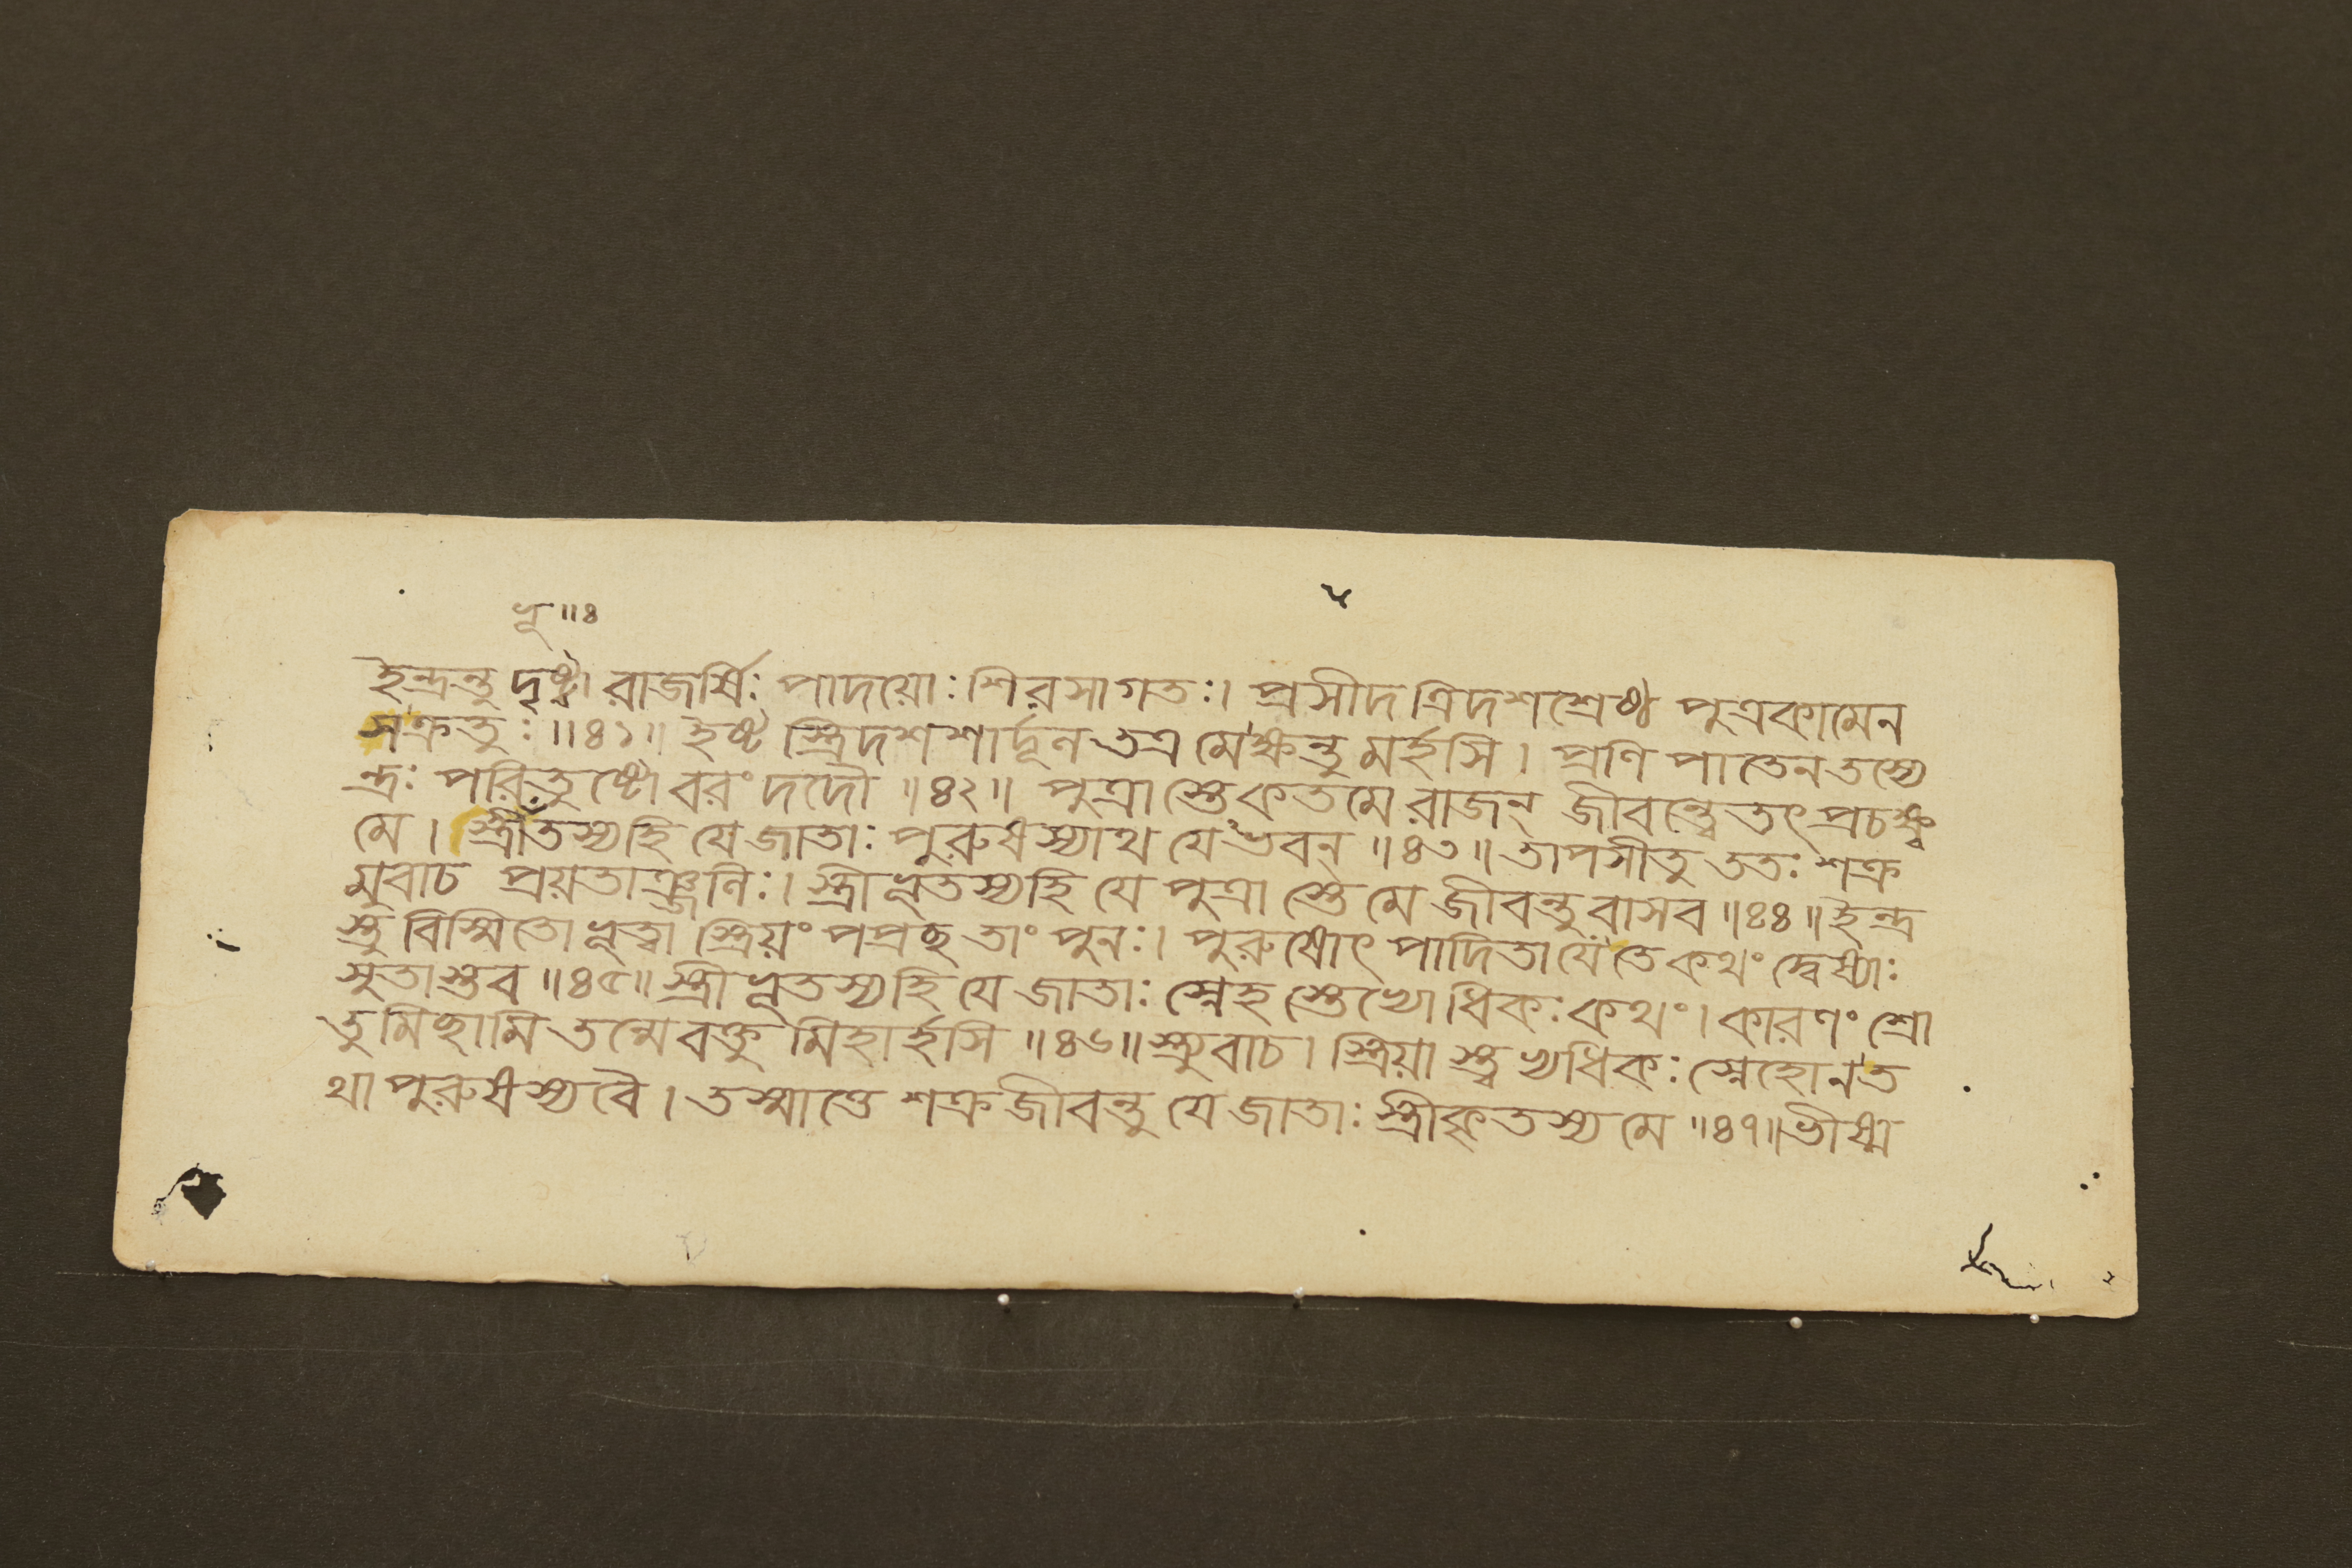 ভূ ॥ ৪
ইন্দ্রন্তু দৃষ্ট্বা রাজর্ষিঃ পাদয়োঃ শিরসাগতঃ। প্রসীদ ত্রিদশশ্রেষ্ঠ পুত্রকামেন
সক্রতুঃ ॥৪১॥ ইষ্ট স্ত্রিদশশার্দ্দূল তত্র মেক্ষন্তু মর্হসি। প্রণি পাতেন তস্যে
ন্দ্রঃ পরিতুষ্টো বরং দদৌ ॥৪২॥ পুত্রা স্তে কতমে রাজন্ জীবন্ত্বেতৎ প্রচক্ষ্ব
মে। স্ত্রীতস্যহি যে জাতাঃ পুরুষস্যাথ যেভবন্ ॥৪৩॥ তাপসীতু ততঃ শক্র
মুবাচ প্রয়তাঞ্জলিঃ। স্ত্রীভূতস্যহি যে পুত্রা স্তে মে জীবন্তু বাসব ॥৪৪॥ ইন্দ্র
স্তু বিস্মিতো ভূত্বা স্ত্রিয়ং পপ্রচ্ছ তাং পুনঃ। পুরুষোৎ পাদিতা যে তে কথং দ্বেষ্যাঃ
সুতাস্তব ॥৪৫॥ স্ত্রীভূতস্যহি যে জাতাঃ স্নেহ স্তেভ্যোধিকঃ কথং। কারণং শ্রো
তুমিচ্ছামি তন্মে বক্তু মিহার্হসি ॥৪৬॥ স্ত্র্যুবাচ। স্ত্রিয়া স্ত্বভ্যধিকঃ স্নেহো ন ত
থা পুরুষস্য বৈ। তস্মাত্তে শক্র জীবন্তু যে জাতাঃ স্ত্রীকৃতস্য মে ॥৪৭॥ ভীষ্ম